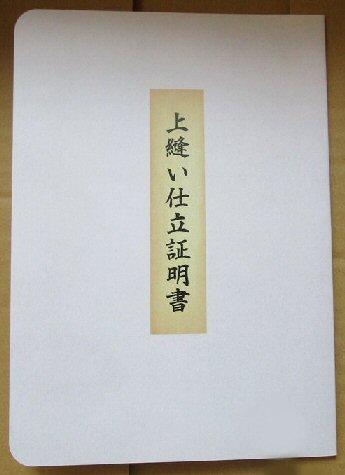 上縫い仕立証明書